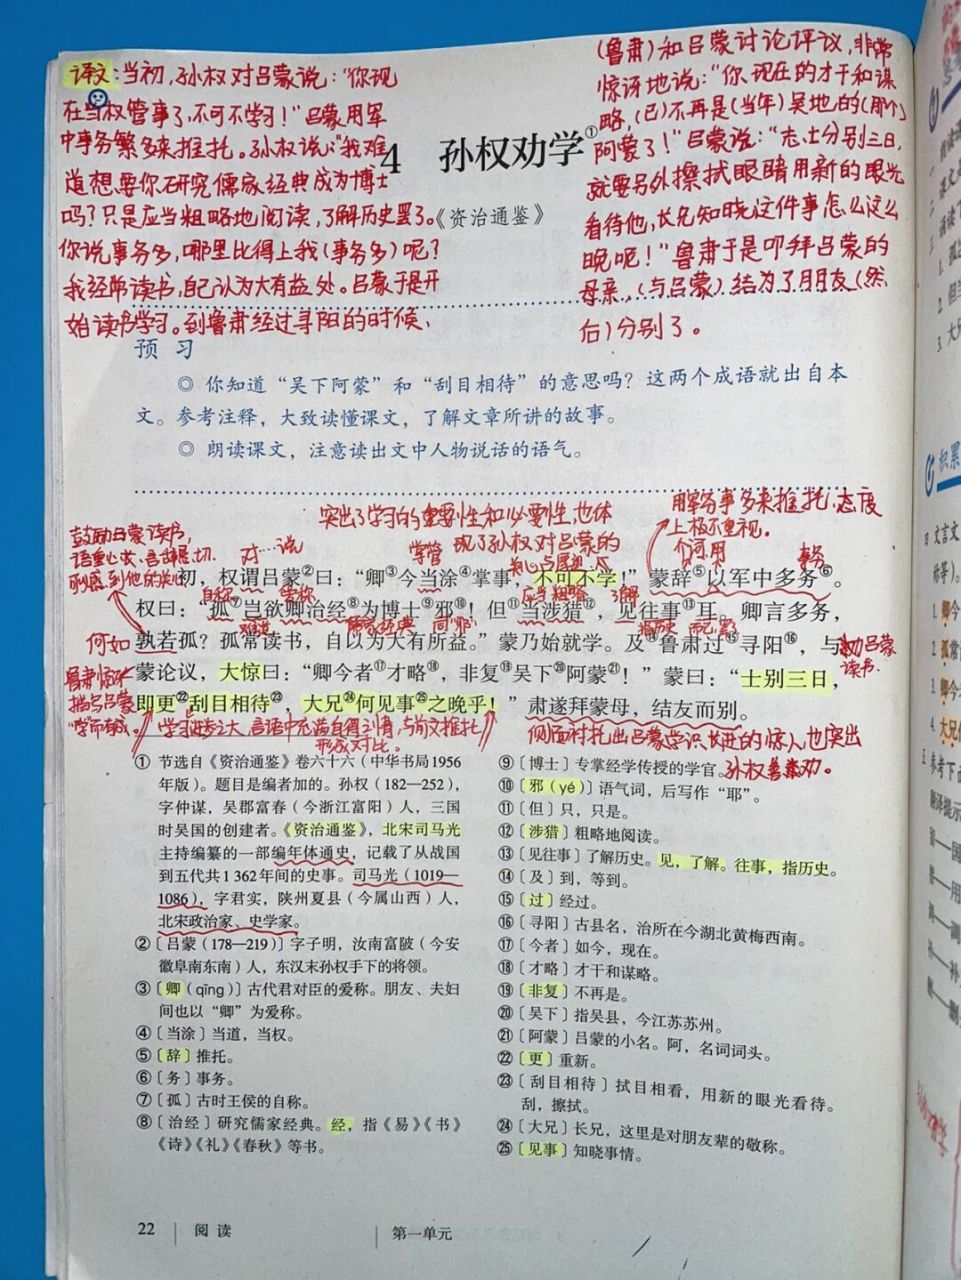 译文:当初,孙权对吕蒙说:“你现
在当权管事了,不可不学习!”吕蒙用军
中事务繁多来推托。孙权说:“我难
道想要你研究儒家经典成为博士
吗?只是应当粗略地阅读,了解历史罢了。
你说事务多,哪里比得上我(事务多)呢?
我经常读书,自己认为大有益处。吕蒙于是开
始读书学习。到鲁肃经过寻阳的时候、
(鲁肃)和吕蒙讨论评议,非常
惊讶地说:“你现在的才干和谋
略,(已)不再是(当年)吴地的(那个)
阿蒙了!”吕蒙说:“志士分别三日,
就要另外擦拭眼睛用新的眼光
看待他,长兄知晓这件事怎么这么
晚呢!”鲁肃于是叩拜吕蒙的
母亲,(与吕蒙)结为了朋友(然
后)分别了。
4 孙权劝学①
《资治通鉴》
预 习
◎ 你知道“吴下阿蒙”和“刮目相待”的意思吗?这两个成语就出自本
文。参考注释,大致读懂课文,了解文章所讲的故事。
◎ 朗读课文,注意读出文中人物说话的语气。
突出了学习的重要性和必要性,也体
现了孙权对吕蒙的
用军务事多来推托,态度
上极不重视。
介词,用
事务
鼓励吕蒙读书,
语重心长,言辞恳切.
对…说
掌管
初,权谓吕蒙②曰:“卿③今当涂④掌事,不可不学!”蒙辞⑤以军中多务⑥。
自称
应当粗略
了解
权曰:“孤⑦岂欲卿治经⑧为博士⑨邪⑩!但⑪当涉猎⑫,见往事⑬耳。卿言多务,
难道
儒家经典
同“耶”
何如
孰若孤?孤常读书,自以为大有所益。”蒙乃始就学。及⑭鲁肃过⑮寻阳⑯,与
劝吕蒙
读书.
蒙论议,大惊曰:“卿今者⑰才略⑱,非复⑲吴下⑳阿蒙㉑!”蒙曰:“士别三日,
即更㉒刮目相待㉓,大兄㉔何见事㉕之晚乎!”肃遂拜蒙母,结友而别。
学习进步之大,言语中充满自得之情,与前文推托
形成对比。
侧面衬托出吕蒙学识长进的惊人,也突出
孙权善劝。
① 节选自《资治通鉴》卷六十六(中华书局1956
年版)。题目是编者加的。孙权(182—252),
字仲谋,吴郡富春(今浙江富阳)人,三国
时吴国的创建者。《资治通鉴》,北宋司马光
主持编纂的一部编年体通史,记载了从战国
到五代共1362年间的史事。司马光(1019—
1086),字君实,陕州夏县(今属山西)人,
北宋政治家、史学家。
②〔吕蒙(178—219)〕字子明,汝南富陂(今安
徽阜南东南)人,东汉末孙权手下的将领。
③〔卿(qīng)〕古代君对臣的爱称。朋友、夫妇
间也以“卿”为爱称。
④〔当涂〕当道,当权。
⑤〔辞〕推托。
⑥〔务〕事务。
⑦〔孤〕古时王侯的自称。
⑧〔治经〕研究儒家经典。经,指《易》《书》
《诗》《礼》《春秋》等书。
⑨〔博士〕专掌经学传授的学官。
⑩〔邪(yé)〕语气词,后写作“耶”。
⑪〔但〕只,只是。
⑫〔涉猎〕粗略地阅读。
⑬〔见往事〕了解历史。见,了解。往事,指历史。
⑭〔及〕到,等到。
⑮〔过〕经过。
⑯〔寻阳〕古县名,治所在今湖北黄梅西南。
⑰〔今者〕如今,现在。
⑱〔才略〕才干和谋略。
⑲〔非复〕不再是。
⑳〔吴下〕指吴县,今江苏苏州。
㉑〔阿蒙〕吕蒙的小名。阿,名词词头。
㉒〔更〕重新。
㉓〔刮目相待〕拭目相看,用新的眼光看待。
刮,擦拭。
㉔〔大兄〕长兄,这里是对朋友辈的敬称。
㉕〔见事〕知晓事情。
22 阅读 第一单元
积累